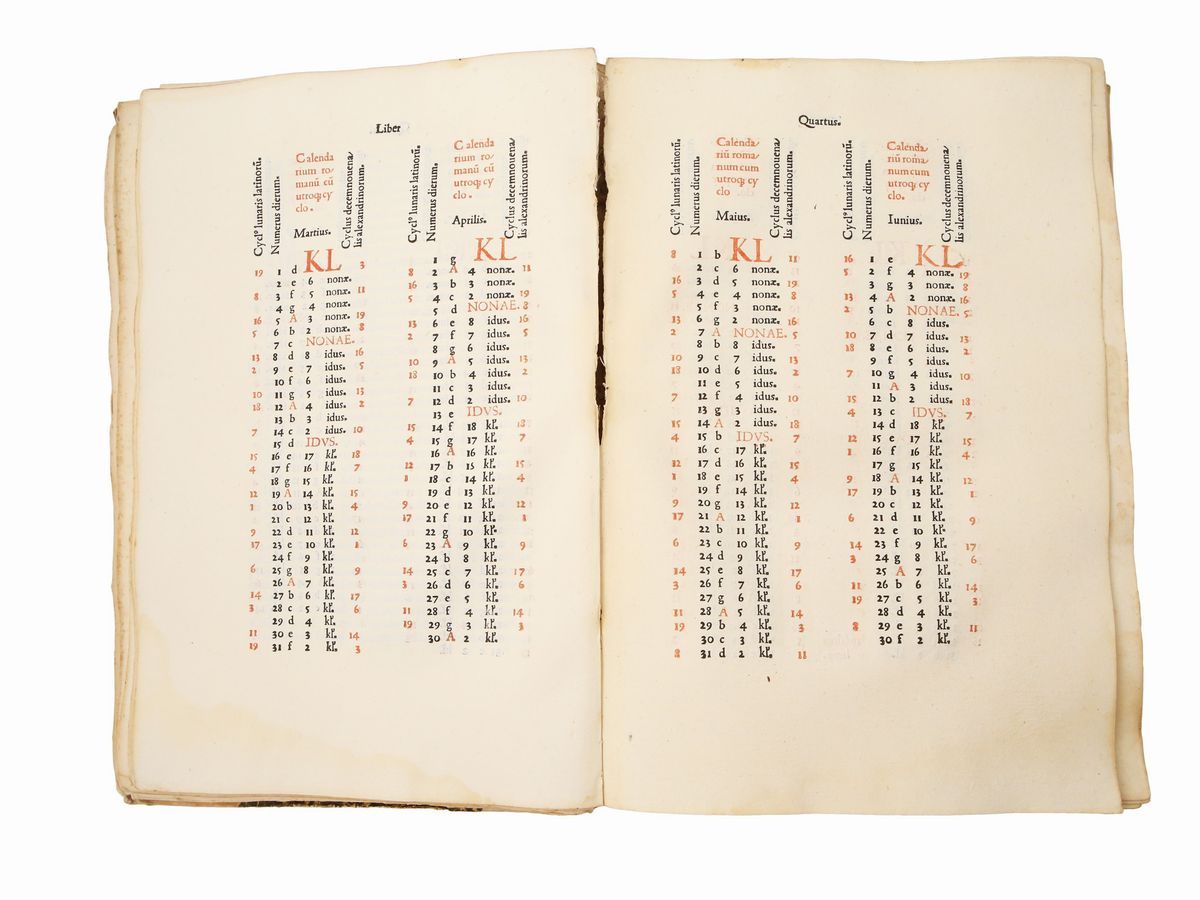 Liber
Cyclꝰ lunaris latinorū.
Numerus dierum.
Calenda
rium ro-
manū cū
utroq; cy
clo.
Martius.
Cyclus decemnouena/
lis alexandrinorum.
19 1 d KL 3
2 e 6 nonæ.
8 3 f 5 nonæ. 11
4 g 4 nonæ.
16 5 A 3 nonæ. 19
5 6 b 2 nonæ. 8
7 c NONAE.
13 8 d 8 idus. 16
2 9 e 7 idus. 5
10 f 6 idus.
10 11 g 5 idus. 13
18 12 A 4 idus. 2
13 b 3 idus.
7 14 c 2 idus. 10
15 d IDVS.
15 16 e 17 kł. 18
4 17 f 16 kł. 7
18 g 15 kł.
12 19 A 14 kł. 15
1 20 b 13 kł. 4
21 c 12 kł.
9 22 d 11 kł. 12
17 23 e 10 kł. 1
24 f 9 kł.
6 25 g 8 kł. 9
26 A 7 kł.
14 27 b 6 kł. 17
3 28 c 5 kł. 6
29 d 4 kł.
11 30 e 3 kł. 14
19 31 f 2 kł. 3
Cyclꝰ lunaris latinorū.
Numerus dierum.
Calenda
rium ro-
manū cū
utroq; cy
clo.
Aprilis.
Cyclus decemnouena/
lis alexandrinorum.
1 g KL
8 2 A 4 nonæ. 11
16 3 b 3 nonæ.
5 4 c 2 nonæ. 19
5 d NONAE. 8
13 6 e 8 idus. 16
2 7 f 7 idus. 5
8 g 6 idus.
10 9 A 5 idus. 13
18 10 b 4 idus. 2
11 c 3 idus.
7 12 d 2 idus. 10
13 e IDVS.
15 14 f 18 kł. 18
4 15 g 17 kł. 7
16 A 16 kł.
12 17 b 15 kł. 15
1 18 c 14 kł. 4
19 d 13 kł.
9 20 e 12 kł. 12
17 21 f 11 kł. 1
22 g 10 kł.
6 23 A 9 kł. 9
24 b 8 kł.
14 25 c 7 kł. 17
3 26 d 6 kł. 6
27 e 5 kł.
11 28 f 4 kł. 14
19 29 g 3 kł. 3
30 A 2 kł.
Quartus.
Cyclꝰ lunaris latinorū.
Numerus dierum.
Calenda/
riū roma/
num cum
utroq; cy
clo.
Maius.
Cyclus decemnouena/
lis alexandrinorum.
8 1 b KL 11
2 c 6 nonæ.
16 3 d 5 nonæ. 19
5 4 e 4 nonæ. 8
5 f 3 nonæ.
13 6 g 2 nonæ. 16
2 7 A NONAE. 5
8 b 8 idus.
10 9 c 7 idus. 13
18 10 d 6 idus. 2
11 e 5 idus.
7 12 f 4 idus. 10
13 g 3 idus.
15 14 A 2 idus. 18
4 15 b IDVS. 7
16 c 17 kł.
12 17 d 16 kł. 15
1 18 e 15 kł. 4
19 f 14 kł.
9 20 g 13 kł. 12
17 21 A 12 kł. 1
22 b 11 kł.
6 23 c 10 kł. 9
24 d 9 kł.
14 25 e 8 kł. 17
3 26 f 7 kł. 6
27 g 6 kł.
11 28 A 5 kł. 14
19 29 b 4 kł. 3
30 c 3 kł.
8 31 d 2 kł. 11
Cyclꝰ lunaris latinorū.
Numerus dierum.
Calenda/
riū roma/
num cum
utroq; cy
clo.
Iunius.
Cyclus decemnouena/
lis alexandrinorum.
16 1 e KL
5 2 f 4 nonæ. 19
3 g 3 nonæ. 8
13 4 A 2 nonæ. 16
2 5 b NONAE. 5
6 c 8 idus.
10 7 d 7 idus. 13
18 8 e 6 idus. 2
9 f 5 idus.
7 10 g 4 idus. 10
11 A 3 idus.
15 12 b 2 idus. 18
4 13 c IDVS. 7
14 d 18 kł.
12 15 e 17 kł. 15
1 16 f 16 kł. 4
17 g 15 kł.
9 18 A 14 kł. 12
17 19 b 13 kł. 1
20 c 12 kł.
6 21 d 11 kł. 9
22 e 10 kł.
14 23 f 9 kł. 17
3 24 g 8 kł. 6
25 A 7 kł.
11 26 b 6 kł. 14
19 27 c 5 kł. 3
28 d 4 kł.
8 29 e 3 kł. 11
30 f 2 kł.